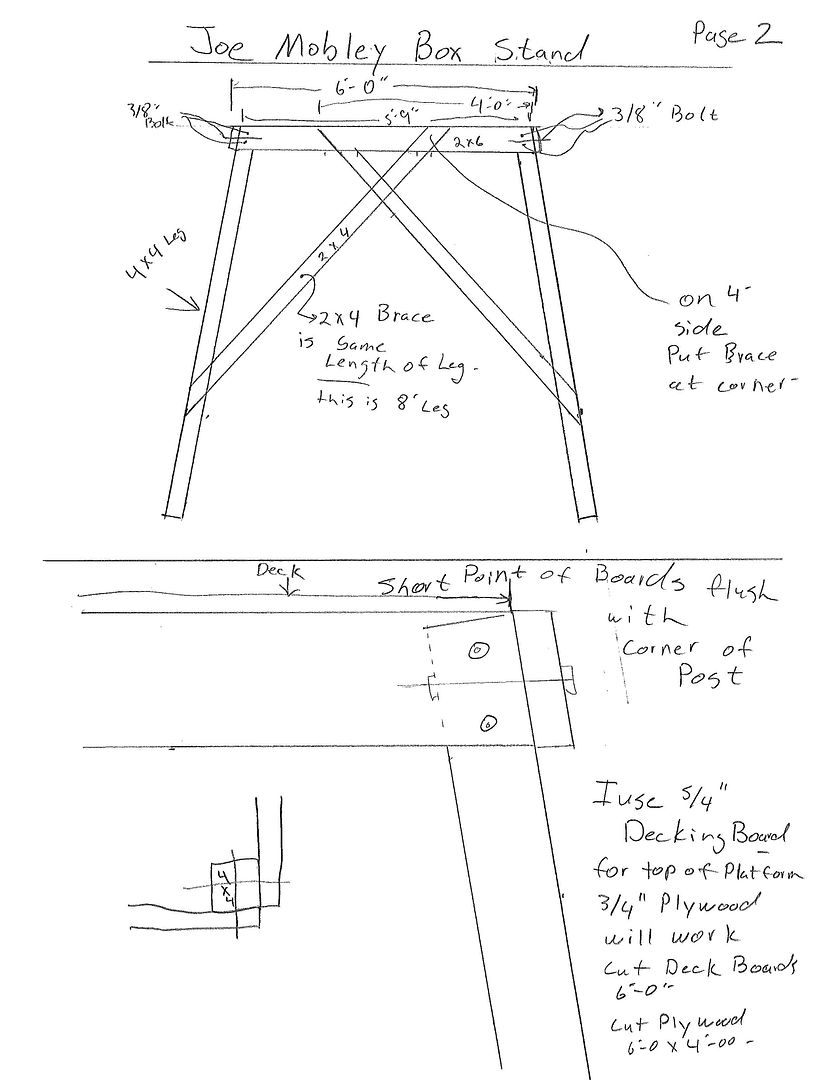 Joe Mobley Box Stand
Page 2
6'-0"
4'-0"
5'-9"
3/8"
Bolt
3/8" Bolt
2x6
2x4
4x4 Leg
2x4 Brace
is Same
Length of Leg.
this is 8' Leg
on 4'
side
Put Brace
at corner
Deck
Short Point of Boards flush
with
Corner of
Post
4x4
I use 5/4"
Decking Board
for top of Platform
3/4" Plywood
will work
Cut Deck Boards
6'-0"
Cut Plywood
6'-0 x 4'-00